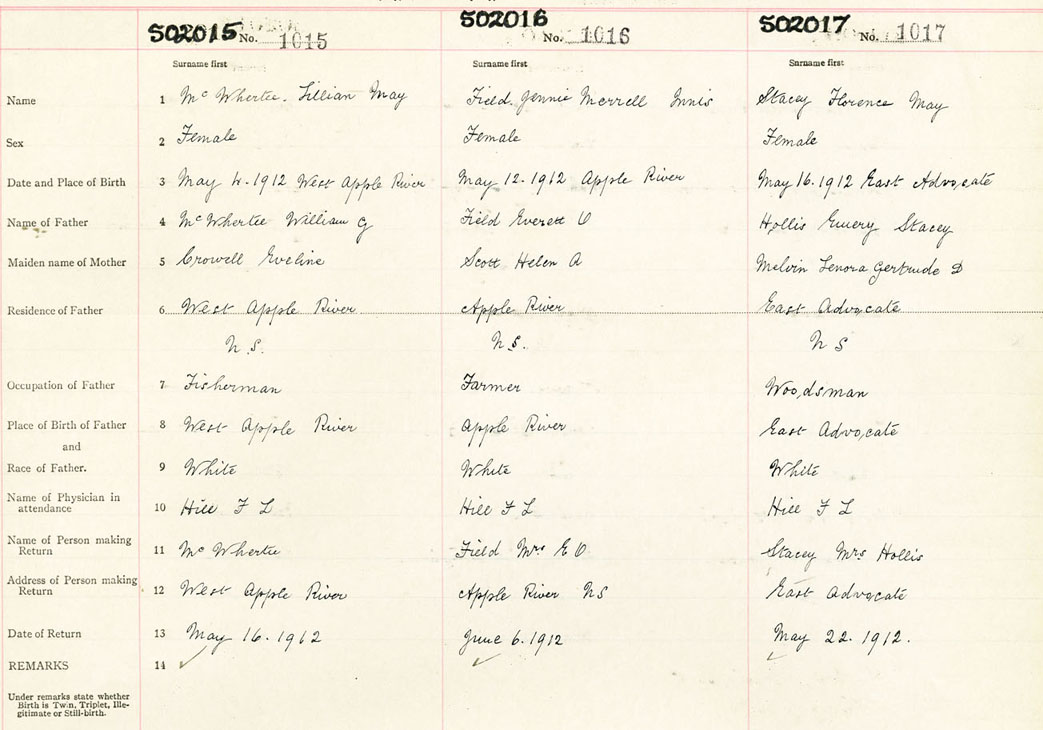 502015 No. 1015 502016 No. 1016 502017 No. 1017
Surname first Surname first Surname first
Name 1 Mc Whertee. Lillian May Field. Jennie Merrell Innis Stacey Florence May
Sex 2 Female Female Female
Date and Place of Birth 3 May 4. 1912 West Apple River May 12. 1912 Apple River May 16. 1912 East Advocate
Name of Father 4 Mc Whertee William G Field Everett O Hollis Emery Stacey
Maiden name of Mother 5 Crowell Eveline Scott Helen A Melvin Lenora Gertrude D
Residence of Father 6 West Apple River Apple River East Advocate
N.S. N.S. N S
Occupation of Father 7 Fisherman Farmer Woodsman
Place of Birth of Father 8 West Apple River Apple River East Advocate
and
Race of Father. 9 White White White
Name of Physician in
attendance 10 Hill F L Hill F L Hill F L
Name of Person making
Return 11 Mc Whertee Field Mrs E O Stacey Mrs Hollis
Address of Person making
Return 12 West Apple River Apple River NS East Advocate
Date of Return 13 May 16. 1912 June 6. 1912 May 22. 1912.
REMARKS 14
Under remarks state whether
Birth is Twin, Triplet, Ille-
gitimate or Still-birth.